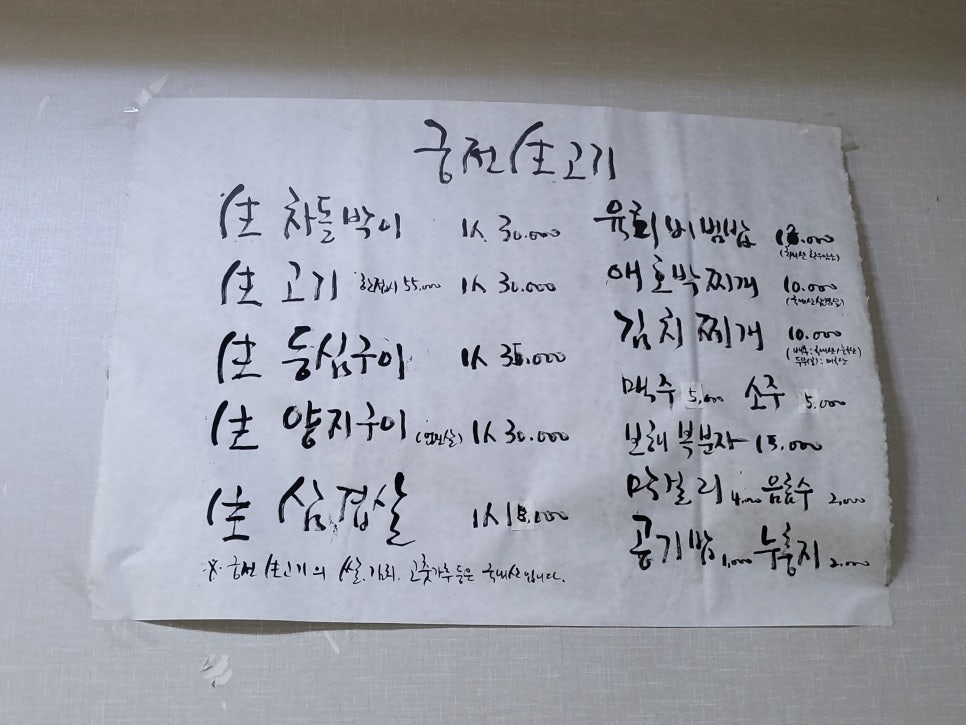 금전 生고기
生 차돌박이 1人 30.000
生 고기 한접시 55,000 1人 30.000
生 등심구이 1人 35.000
生 양지구이 1人 30.000
生 삼겹살 1人 18,000
※ 금전 生고기의 쌀, 김치, 고춧가루 등은 국내산입니다.
육회비빔밥
애호박찌개 10.000
김치찌개 10.000
맥주 5,000 소주 5.000
보해 복분자 15.000
막걸리 4,000 음료수 2,000
공기밥 1,000 누룽지 2.000